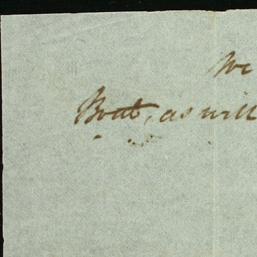 We
Boat, as will